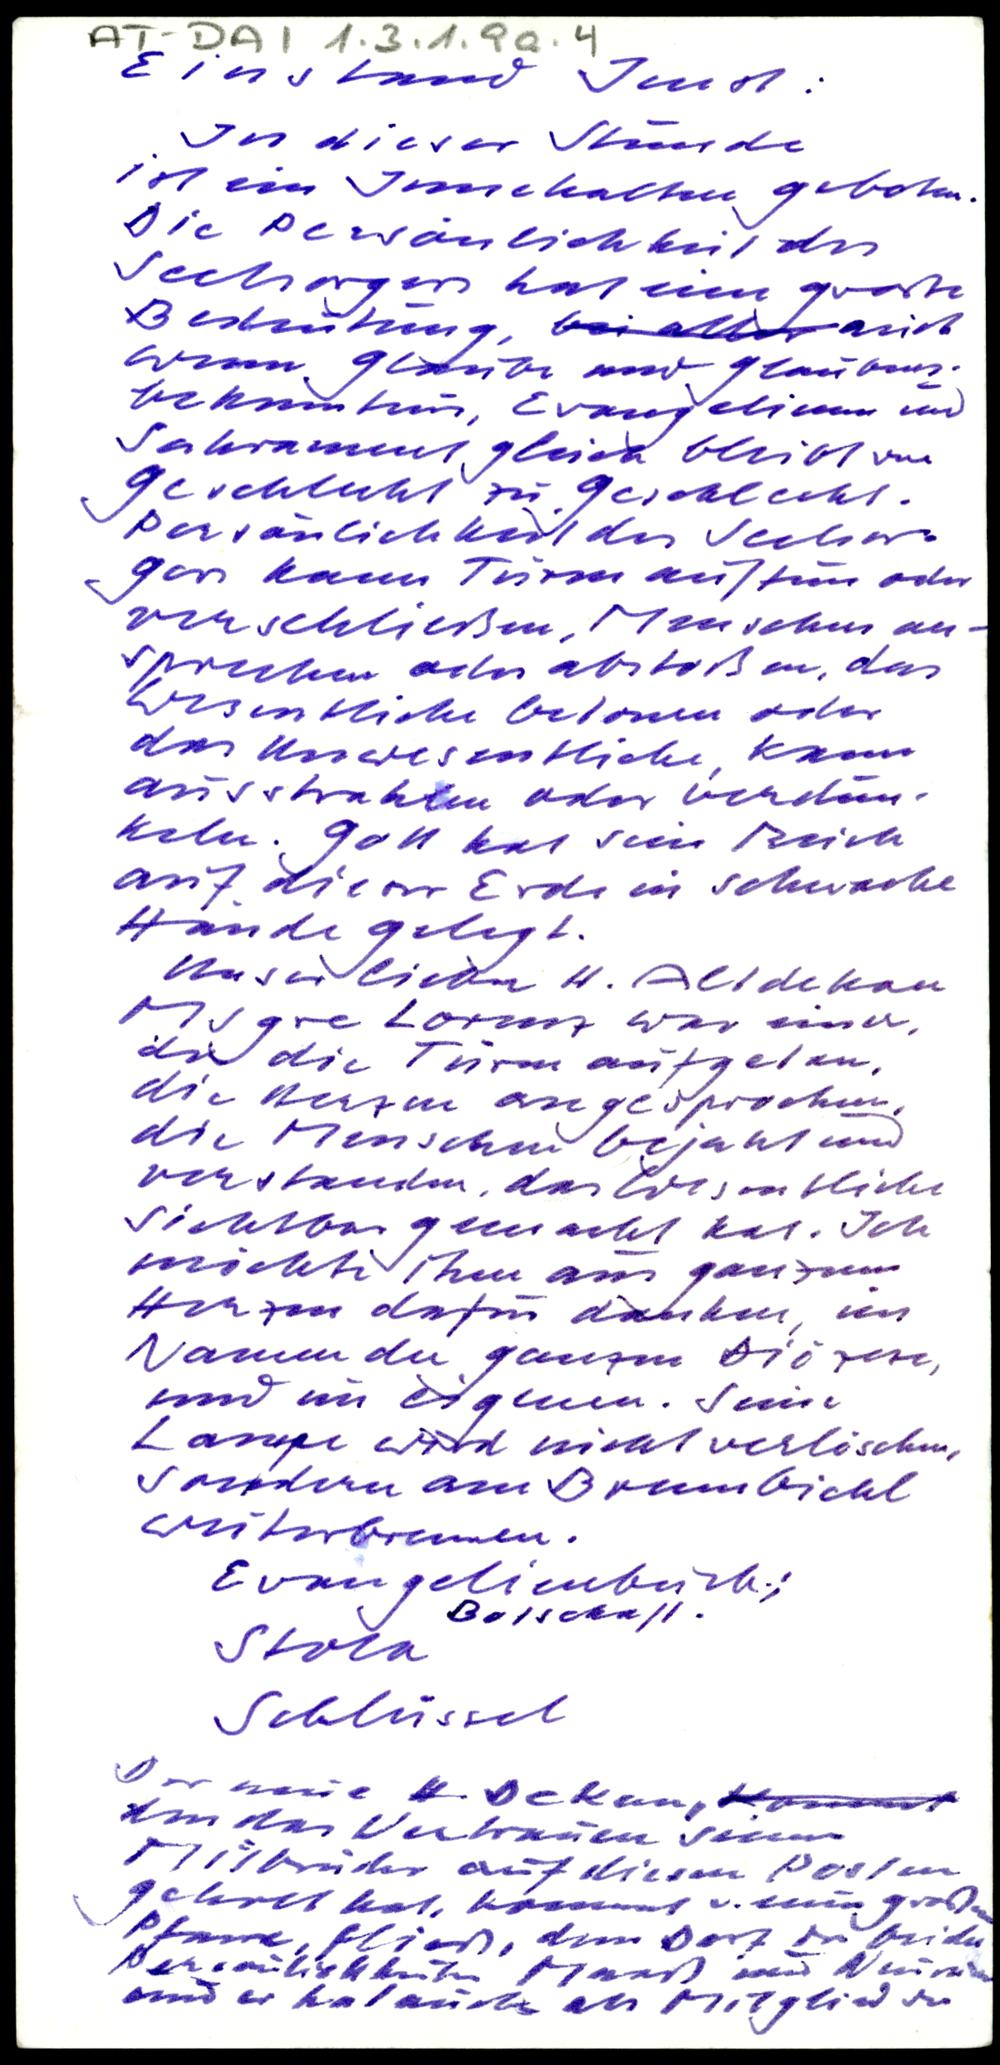 AT-DAI 1.3.1.9a.4
Einstand Imst:
In dieser Stunde
ist ein Innehalten geboten.
Die Persönlichkeit des
Seelsorgers hat eine große
Bedeutung, bei aller auch
wenn Glaube und Glaubens-
bekenntnis, Evangelium und
Sakrament gleich bleibt von
Geschlecht zu Geschlecht.
Persönlichkeit des Seelsor-
gers kann Türen auftun oder
verschließen, Menschen an-
sprechen oder abstoßen, das
Wesentliche betonen oder
das Unwesentliche, kann
ausstrahlen oder verdun-
keln. Gott hat sein Reich
auf dieser Erde in schwache
Hände gelegt.
Unser lieber H. Altdekan
Msgre Lorenz war einer,
der die Türen aufgetan,
die Herzen angesprochen,
die Menschen bejaht und
verstanden, das Wesentliche
sichtbar gemacht hat. Ich
möchte ihm aus ganzem
Herzen dafür danken, im
Namen der ganzen Diözese,
und im eigenen. Seine
Lampe wird nicht verlöschen,
sondern am Brennbichl
weiterbrennen.
Evangelienbuch;
Botschaft.
Stola
Schlüssel
Der neue H. Dekan, kommt
den das Vertrauen seiner
Mitbrüder auf diesen Posten
geholt hat, kommt v. einer großen
Pfarre, Fließ, dem Dorf der beiden
Persönlichkeiten Maaß und Neurauter
und er hat auch als Mitglied der